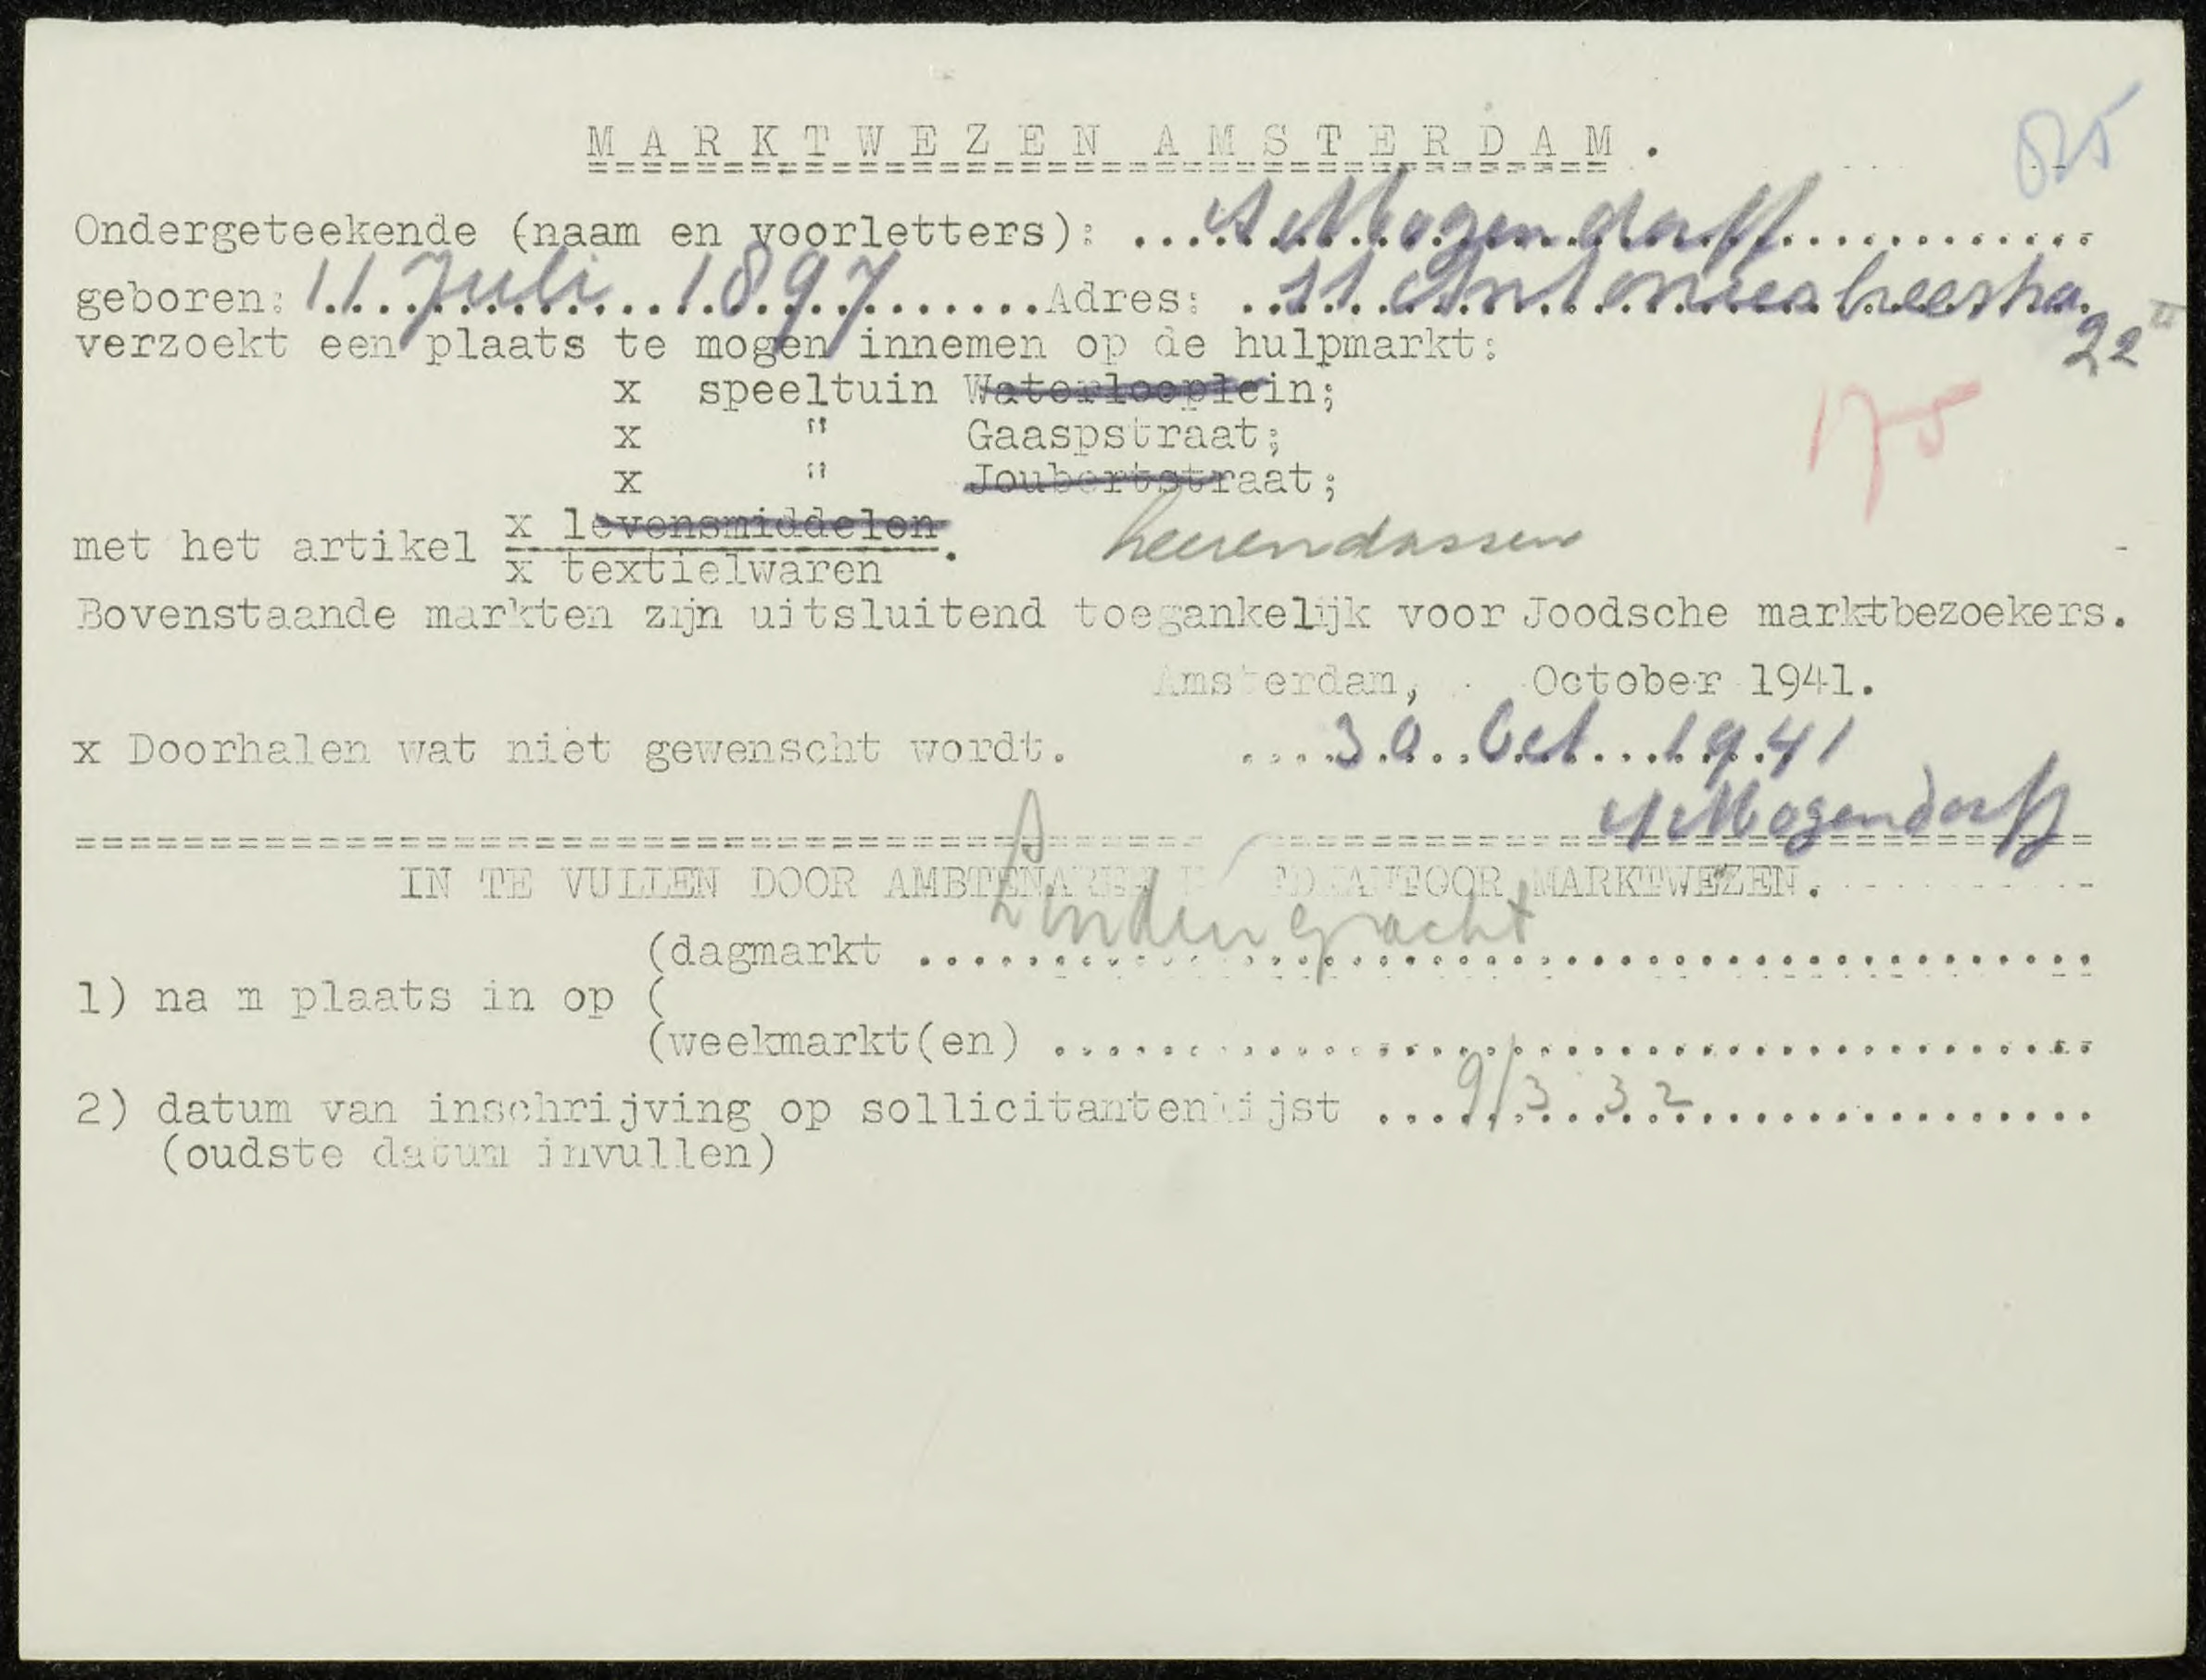 MARKTWEZEN AMSTERDAM.
Ondergeteekende (naam en voorletters): .... Mogendorff ....
geboren: 11 Juli 1897 .... Adres: .... St Antoniesbreestra.
22 II
verzoekt een plaats te mogen innemen op de hulpmarkt:
x speeltuin Waterlooplein;
x " Gaaspstraat;
x " Joubertstraat;
175
met het artikel x levensmiddelen.
x textielwaren
heerendassen
Bovenstaande markten zijn uitsluitend toegankelijk voor Joodsche marktbezoekers.
Amsterdam, October 1941.
x Doorhalen wat niet gewenscht wordt. .... 30 Oct 1941
Mogendorff
IN TE VULLEN DOOR AMBTENAREN HOOFDKANTOOR MARKTWEZEN.
Lindengracht
(dagmarkt ....
1) na m plaats in op (
(weekmarkt(en) ....
2) datum van inschrijving op sollicitantenlijst .... 9/3 32 ....
(oudste datum invullen)